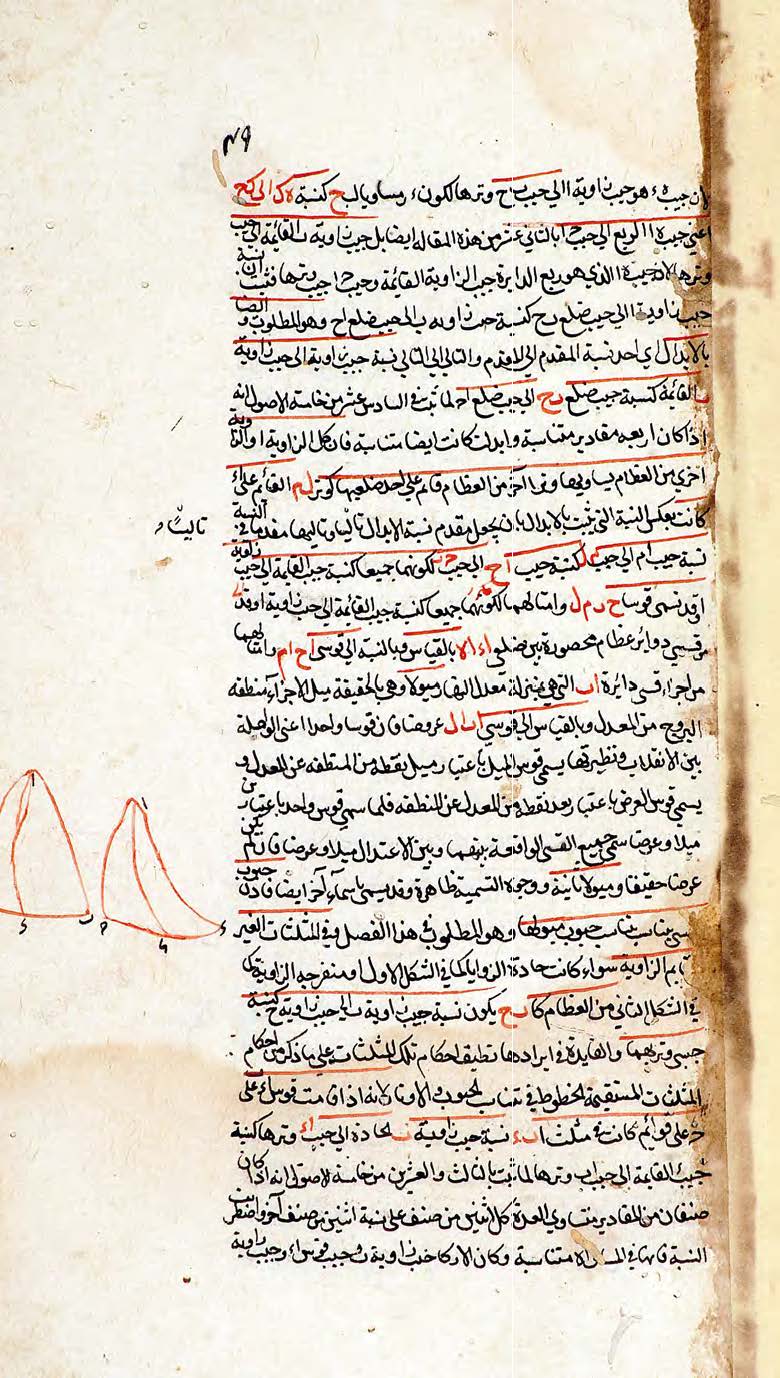 ٤٩
لان جيب ه‍ ء هو جيب زاوية ا الي جيب ب ح وترها لكون ء ر مساويا لب ح كنسبة
اعني جيب ه ا الربع الي جيب ح ا بالثاني عشر من هذه المقاله ايضا بل جيب زاوية ب القائمة الي جيب
وترها لان جيب ه ا الذي هو ربع الدايرة جيب الزاوية القائمة وجيب ح ا جيب وترها فثبت ان نسبة
جيب زاوية ا الي جيب ضلع ب ح كنسبة جيب زاوية ب الي جيب ضلع ا ح وهو المطلوب و ايضا
بالابدال اي اخذ نسبة المقدم الي المقدم والتالي الي التالي نسبة جيب زاوية ا الي جيب زاوية
ب القائمة كنسبة جيب ضلع ب ح الي جيب ضلع ا ح لما ثبت في السادس عشر من خامسة الاصول انه
اذا كان اربعه مقادير متناسبة وابدلت كانت ايضا متناسبة فان كل الزاوية ا والقا وية
اخري من العظام يساويها وترا آخر من العظام قائم علي احد ضلعيها كوتر ل م القائم علي ا ء
كانت بعكس النسبة التي يثبت بالابدال بان يجعل مقدم نسبة الابدال تاليا وتاليها مقدما في النسبة
تاليًا
نسبة جيب ا م الي جيب كنسبة جيب ا ح الي جيب ح ب لكونهما جميعا كنسبة جيب القايمة الي جيب زاوية
ا وقد تسمي قوسا ح ب م ل وامثالهما لكونهما جميعا كنسبة جيب القائمة الي جيب زاوية ا وقد
من قسي دوائر عظام محصورة بين ضلعي ا ء ا ه بالقياس وبالنسبة الي قوسي ا ح ا م وامثالهما
من اجزاء قسي دائرة ا ب التي هي بمنزلة معدل النهار ميولا وهي بالحقيقة ميل الاجزاء منطقه
البروج من المعدل وبالقياس الي قوسي ا ب ا ل عروضا فان قوسا واحدا اعني الواصلة
بين الانقلاب ونظيرتها يسمي قوس الميل باعتبار ميل نقطه من المنطقه عن المعدل و
يسمي قوس العرض باعتبار بعد نقطه من المعدل عن المنطقه فلما سمي قوس واحد باعتبارين
ميلا وعرضا سمي جميع القسي الواقعة بينهما وبين الاعتدال ميلا وعرضا فان لم يكن
عرضا حقيقا وميولا ثانية ووجوه التسمية ظاهرة وقد يسمي باسماء آخر ايضا فاذن جيوب
القسي يناسب تناسب جيوب ميولها وهو المطلوب في هذا الفصل وفي المثلثات الغير
قايم الزاوية سواء كانت حادة الزوايا كما في الشكل الاول او منفرجه الزاوية كما
في الشكل الثاني من العظام كا ب ح يكون نسبة جيب زاوية ب الي جيب زاوية ح كنسبة
جيبي وتريهما والفايدة في ايرادها تطبيق احكام تلك المثلثات علي ما ذكر من احكام
المثلثات المستقيمة الخطوط في تناسب الجيوب والاوتار لانه اذا قامت قوس ا ء علي
ب ح علي قوائم كان في مثلث ا ب ء نسبة جيب زاوية ب الحادة الي جيب ا ء وترها كنسبة
جيب ء القايمة الي جيب ا ب وترها لما ثبت بالثالث والعشرين من خامسة الاصول انه اذا كان
صنفان من المقادير متساوي العدة كل اثنين من صنف علي نسبة اثنين من صنف آخر واضطربت
النسبة فانها في المساواة متناسبة وكان الاركا جيب زاوية ب وجيب قوس ا ء وجيب زاوية